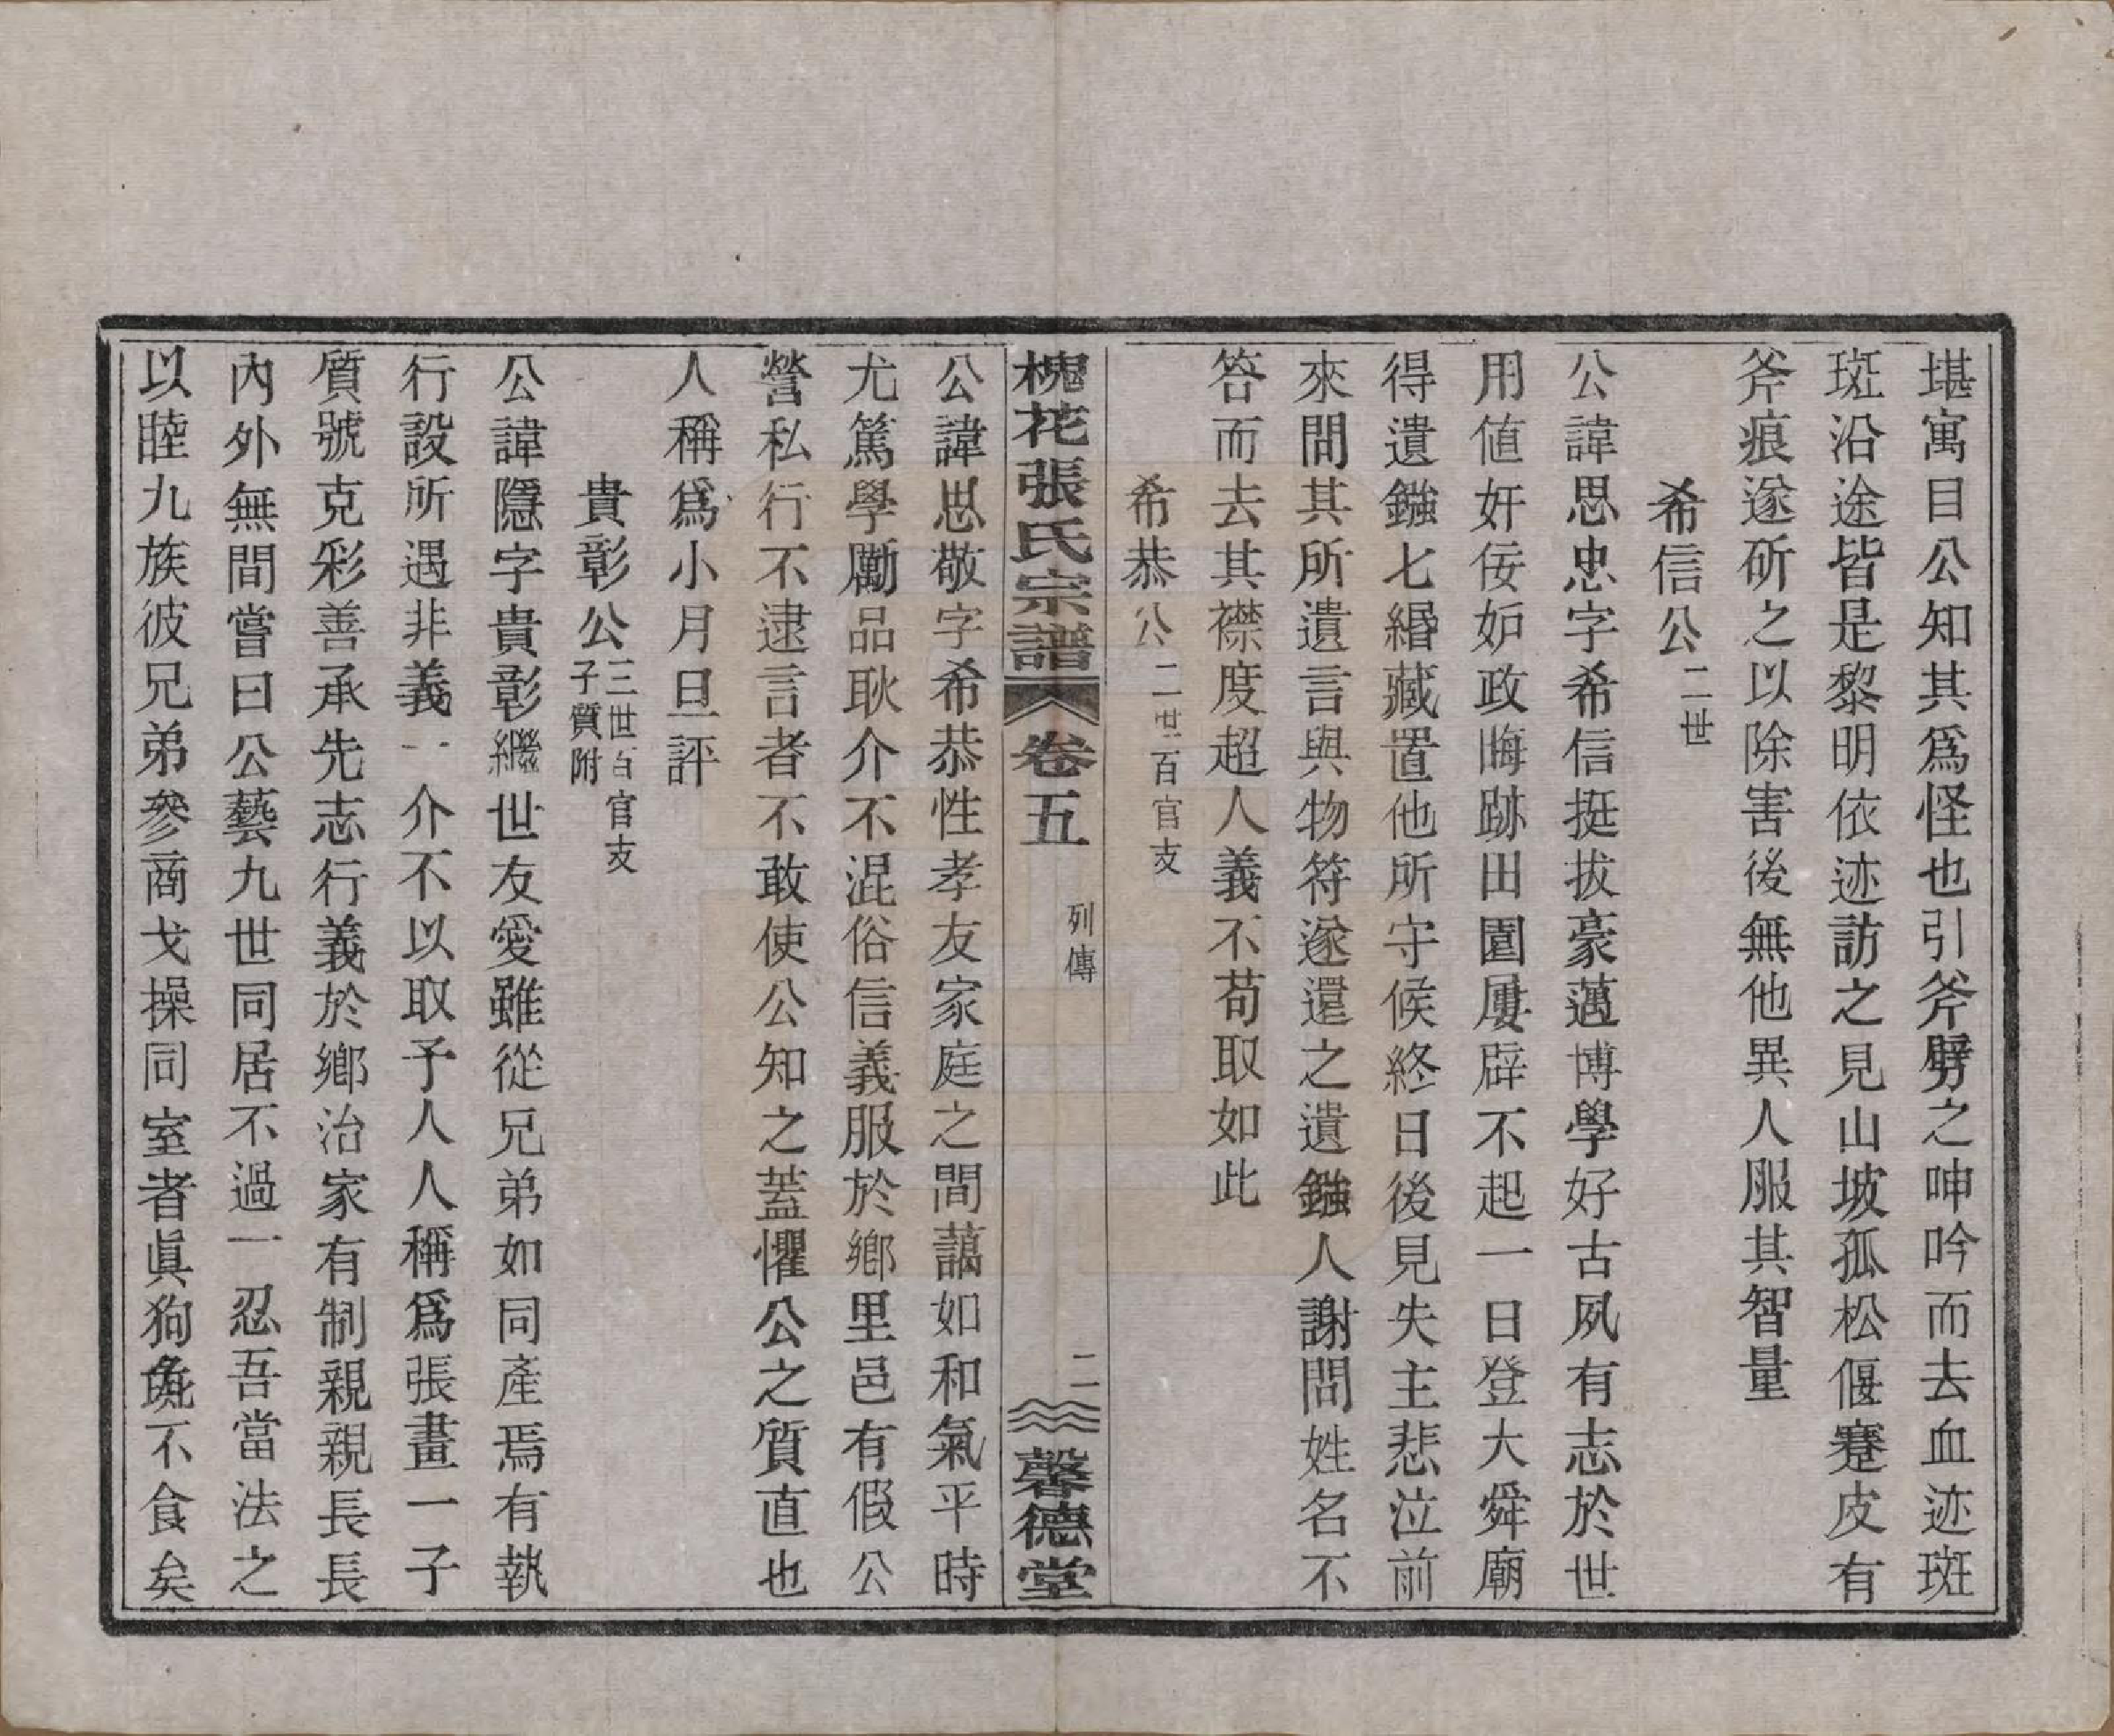 堪寓目公知其爲怪也引斧劈之呻吟而去血迹斑
斑沿途皆是黎明依迹訪之見山坡孤松偃蹇皮有
斧痕遂斫之以除害後無他異人服其智量
希信公二世
公諱思忠字希信挺拔豪邁博學好古夙有志於世
用値奸佞妒政晦跡田園屢辟不起一日登大舜廟
得遺鏹七緡藏置他所守候終日後見失主悲泣前
來問其所遺言與物符遂還之遺鏹人謝問姓名不
答而去其襟度超人義不苟取如此
希恭公二世百官支
槐花張氏宗譜 卷五 列傳 二 馨德堂
公諱思敬字希恭性孝友家庭之間藹如和氣平時
尤篤學勵品耿介不混俗信義服於鄉里邑有假公
營私行不逮言者不敢使公知之蓋懼公之質直也
人稱爲小月旦評
貴彰公三世百官支子質附
公諱隱字貴彰繼世友愛雖從兄弟如同產焉有執
行設所遇非義一介不以取予人人稱爲張畫一子
質號克彩善承先志行義於鄉治家有制親親長長
內外無間嘗曰公藝九世同居不過一忍吾當法之
以睦九族彼兄弟參商戈操同室者眞狗彘不食矣